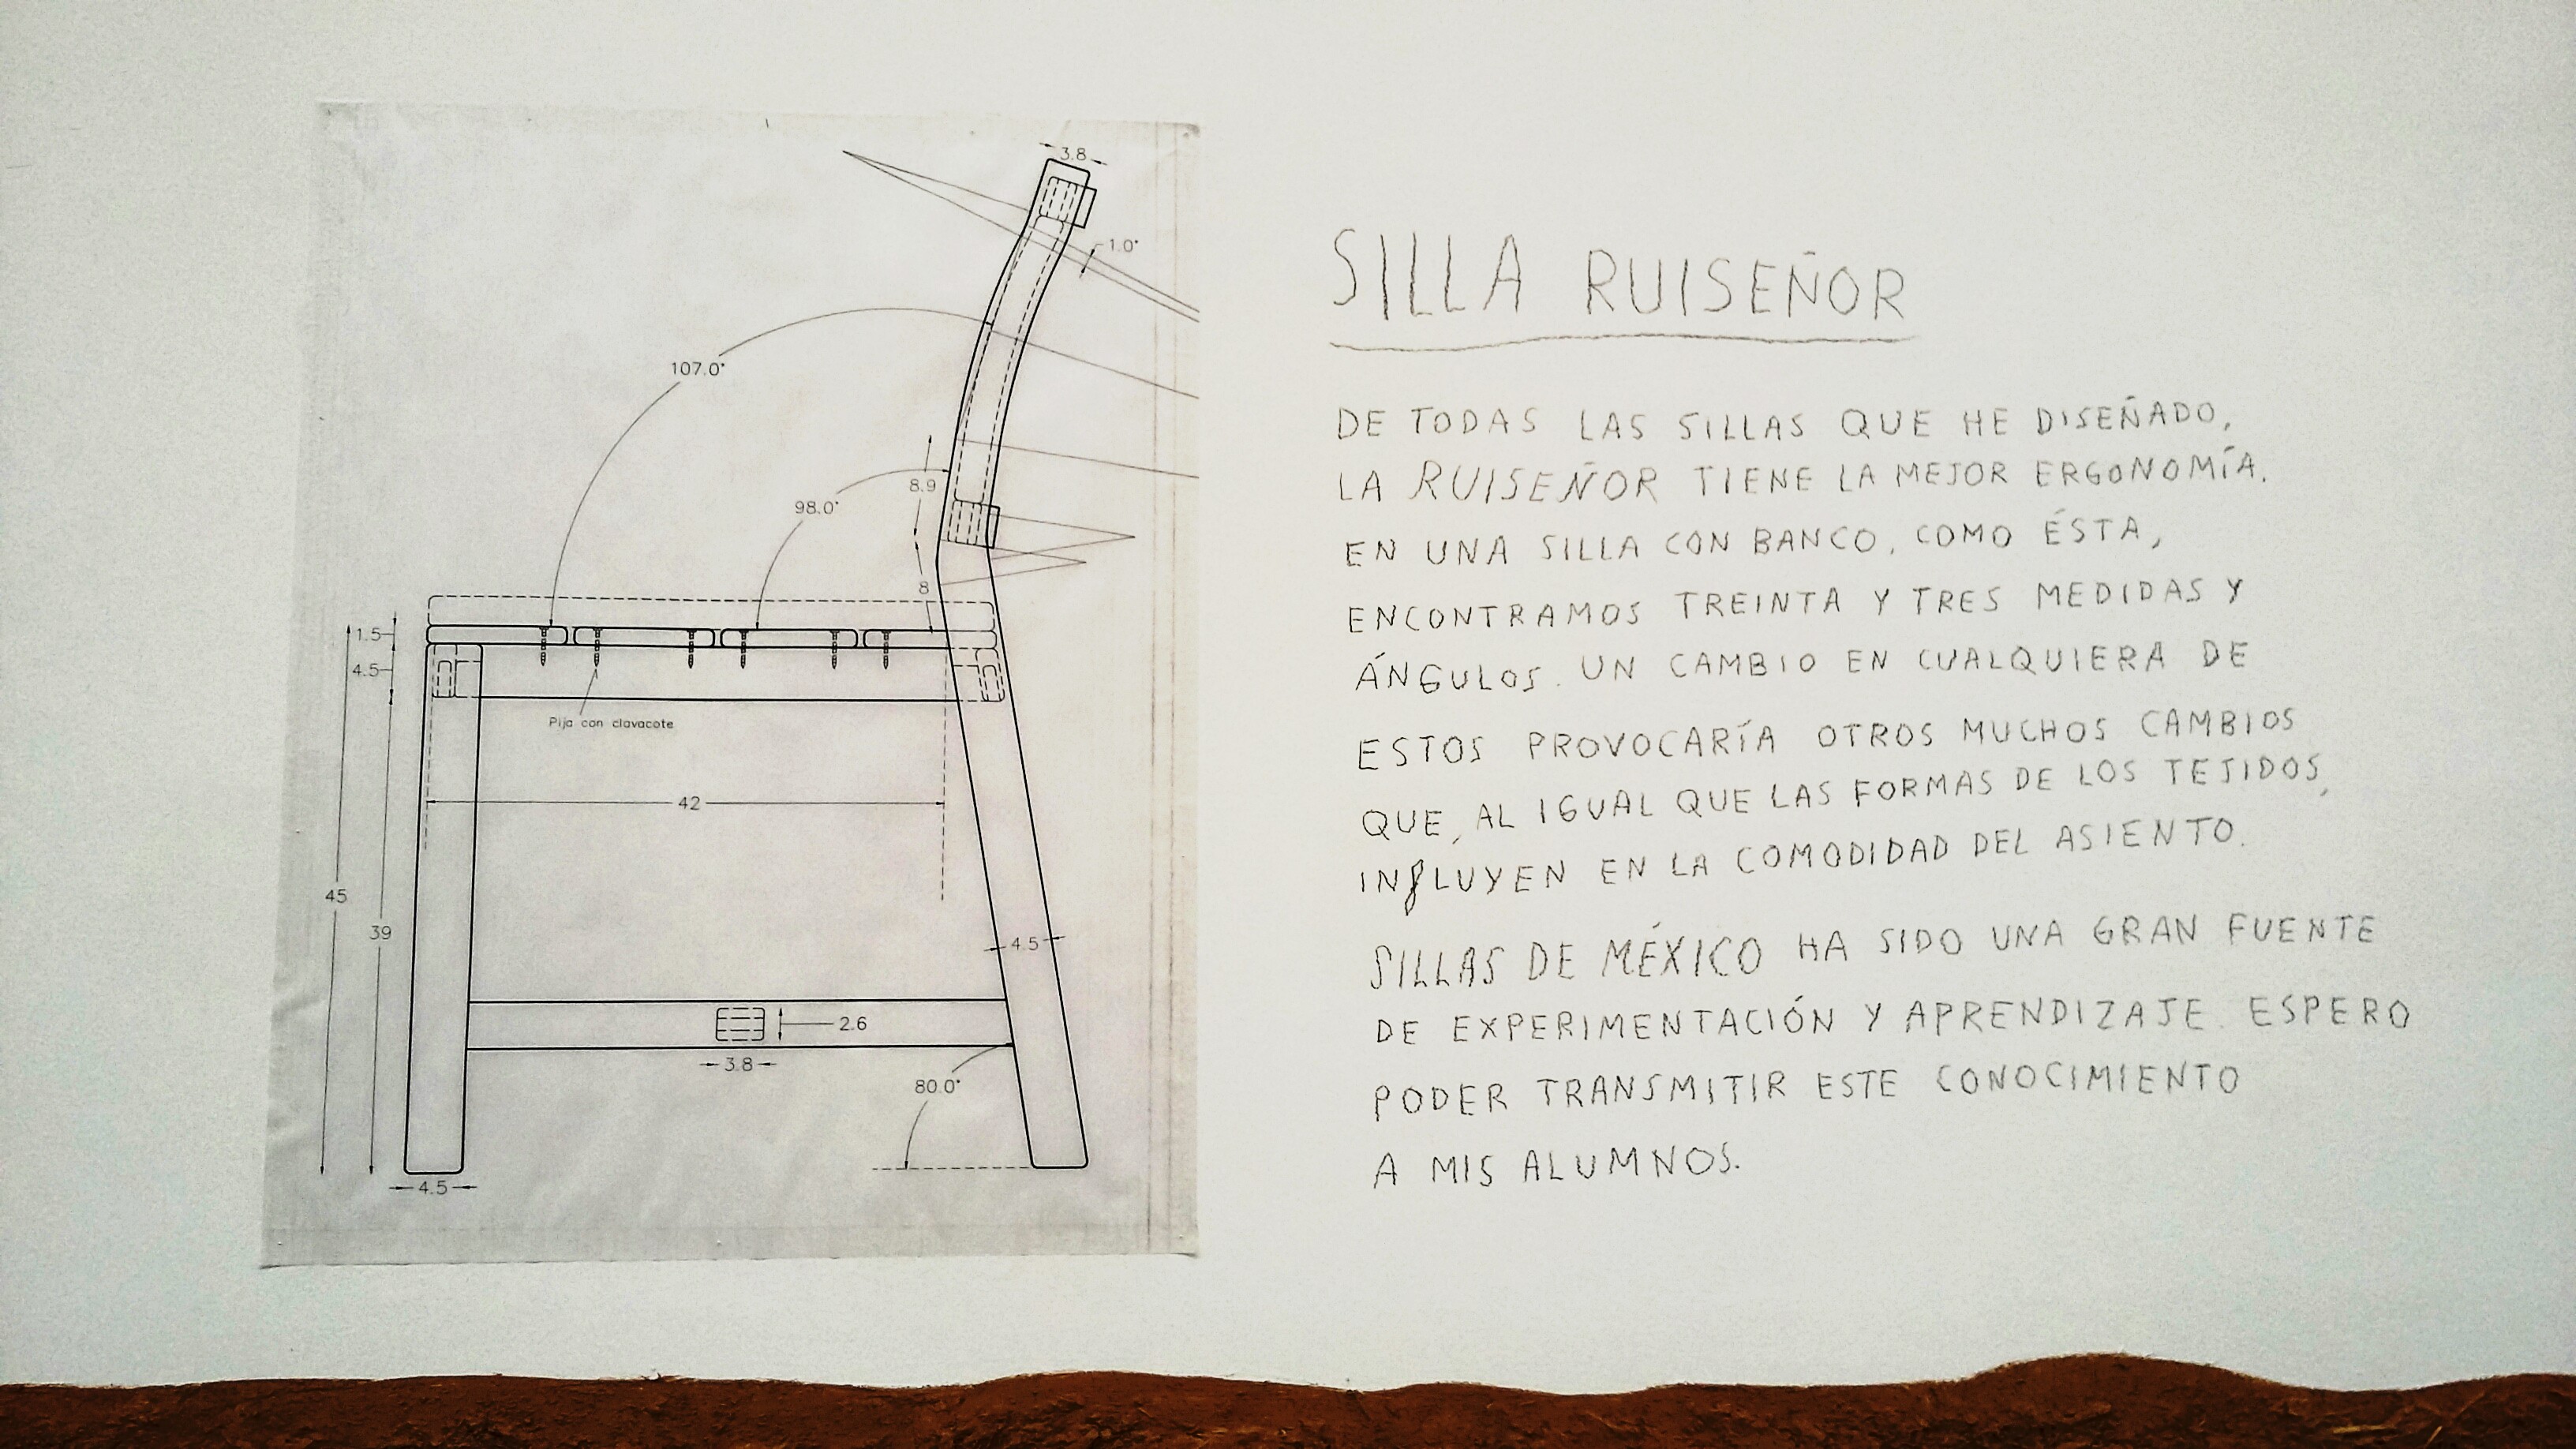 3.8
1.0°
107.0°
8.9
98.0°
8
1.5
4.5
Pija con clavacote
42
45
39
4.5
2.6
3.8
80.0°
4.5
SILLA RUISEÑOR
DE TODAS LAS SILLAS QUE HE DISEÑADO,
LA RUISEÑOR TIENE LA MEJOR ERGONOMÍA.
EN UNA SILLA CON BANCO, COMO ÉSTA,
ENCONTRAMOS TREINTA Y TRES MEDIDAS Y
ÁNGULOS. UN CAMBIO EN CUALQUIERA DE
ESTOS PROVOCARÍA OTROS MUCHOS CAMBIOS
QUE, AL IGUAL QUE LAS FORMAS DE LOS TEJIDOS,
INfLUYEN EN LA COMODIDAD DEL ASIENTO.
SILLAS DE MÉXICO HA SIDO UNA GRAN FUENTE
DE EXPERIMENTACIÓN Y APRENDIZAJE. ESPERO
PODER TRANSMITIR ESTE CONOCIMIENTO
A MIS ALUMNOS.